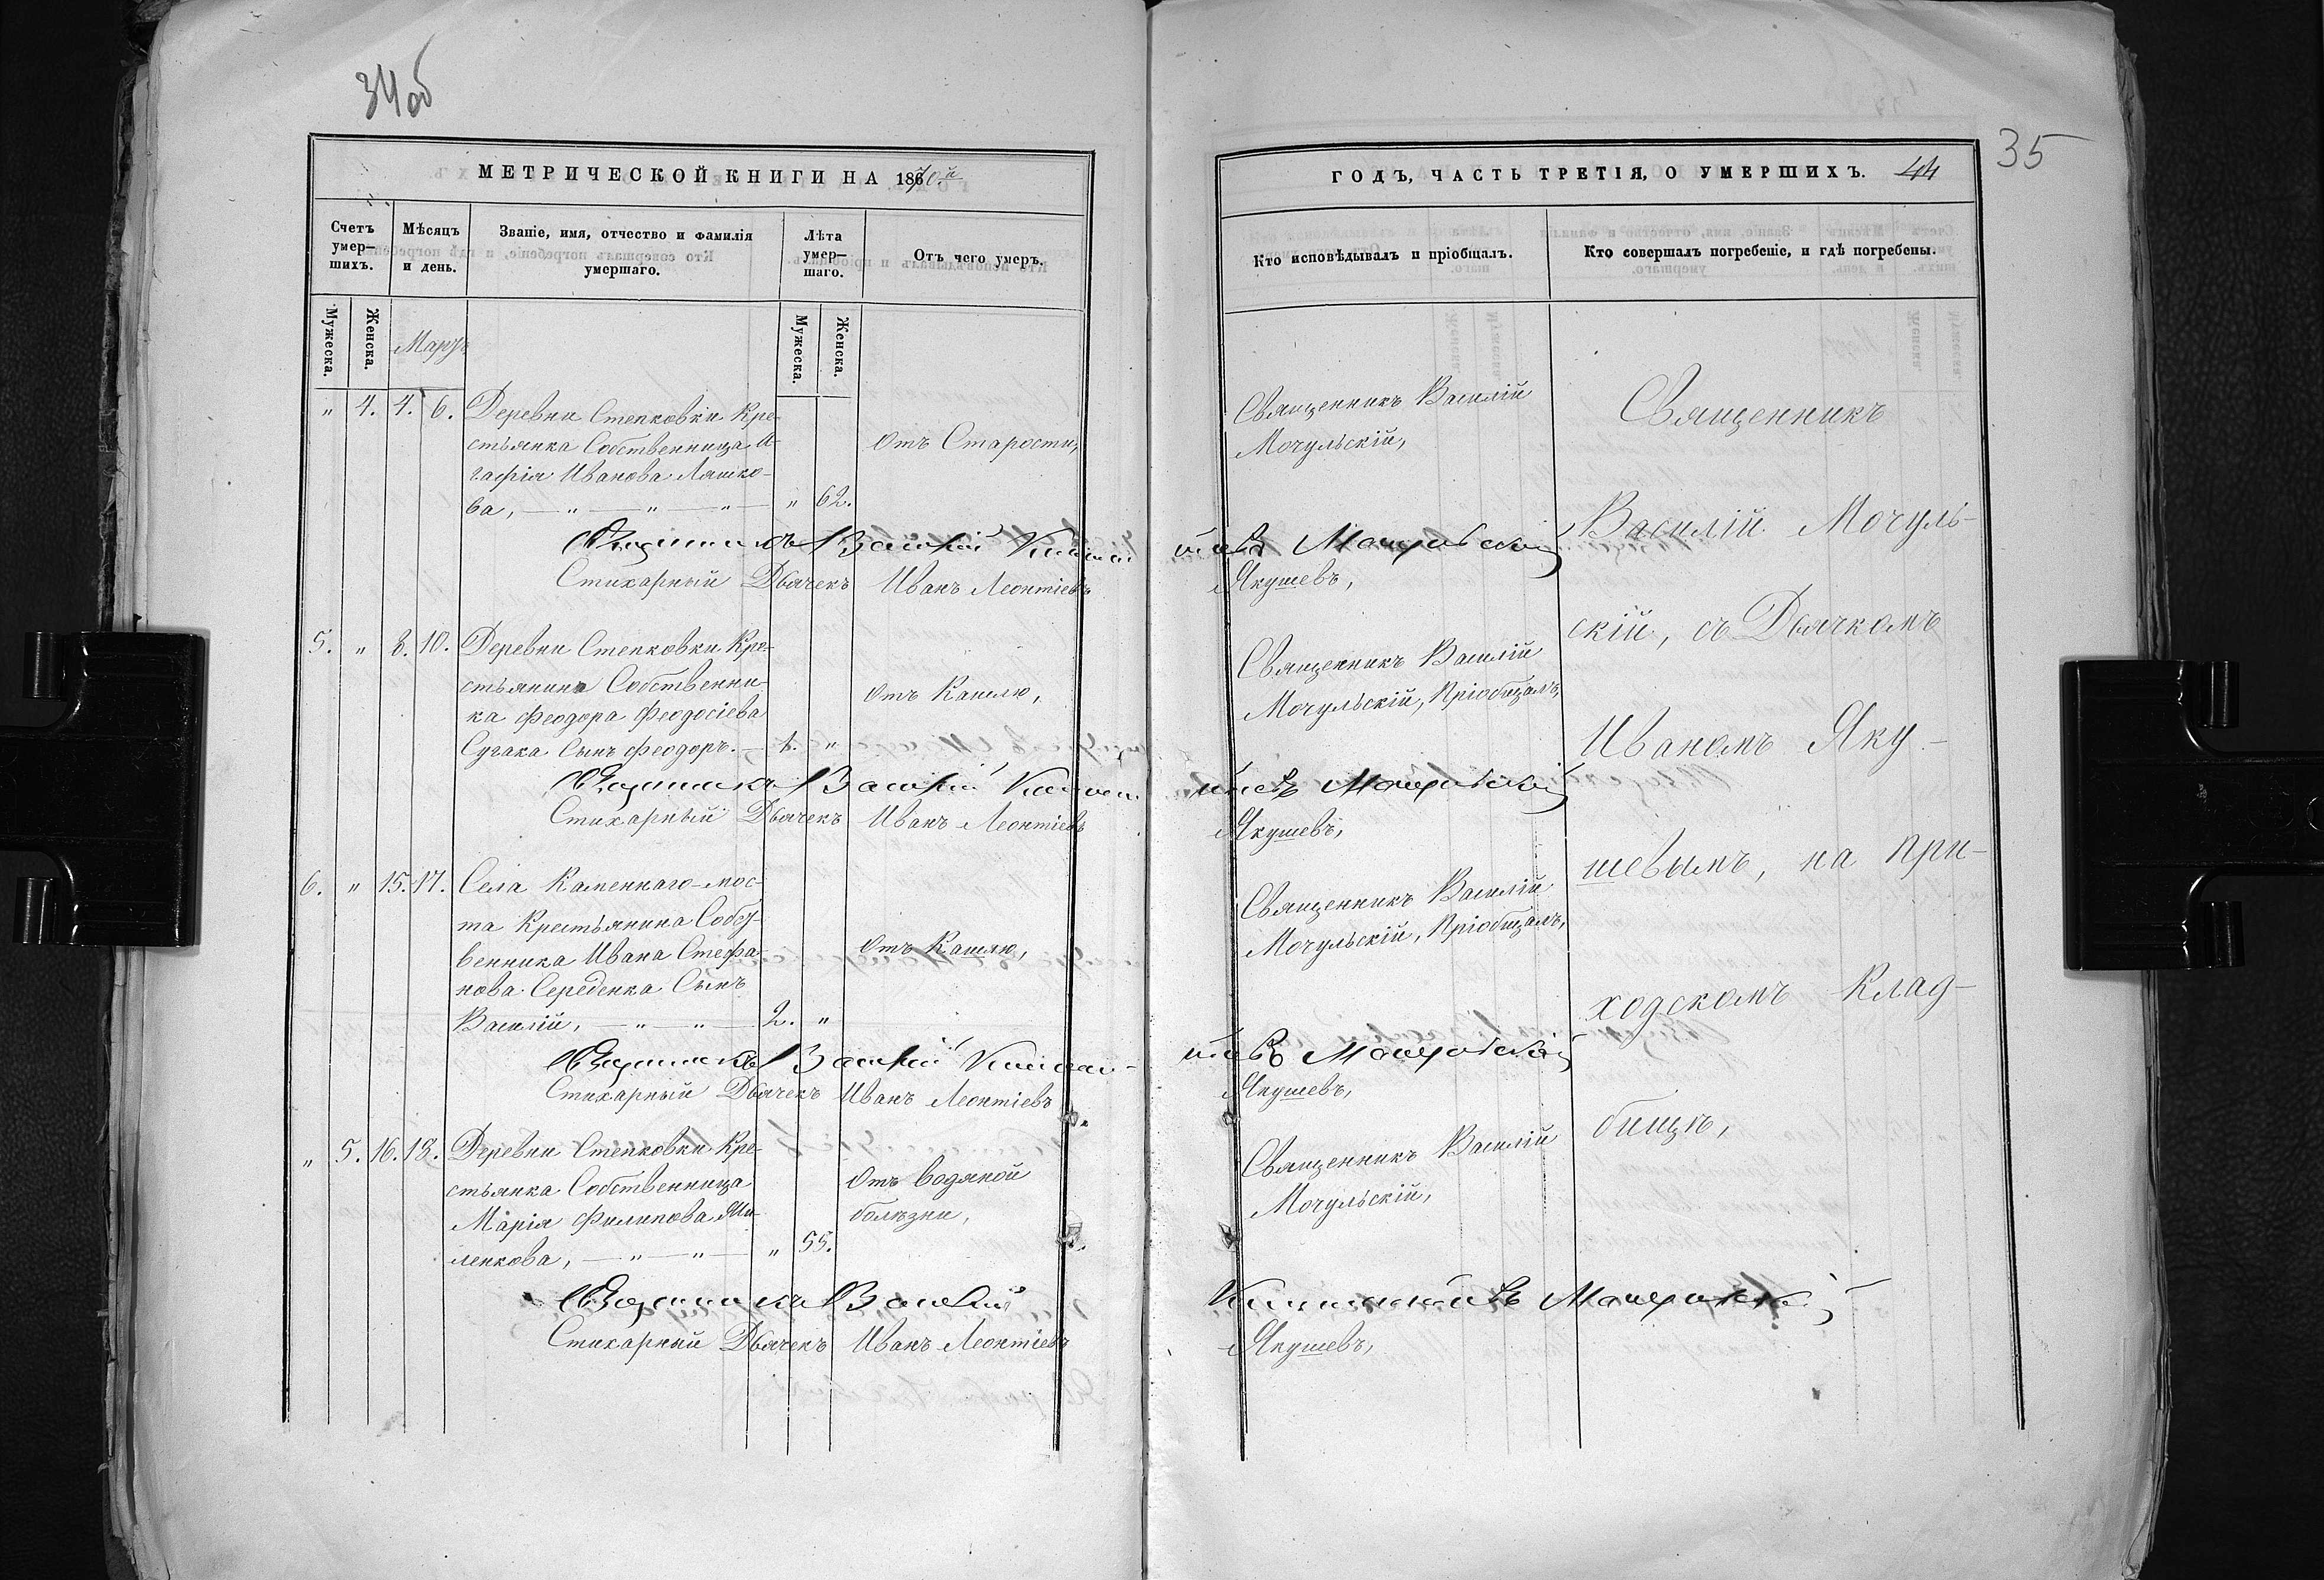 34об
МЕТРИЧЕСКОЙ КНИГИ НА 1870й
Счетъ умер-шихъ.
Мѣсяцъ и день.
Званіе, имя, отчество и фамилія умершаго.
Лѣта умер-шаго.
Отъ чего умеръ.
Мужеска.
Женска.
Мартъ
Мужеска.
Женска.
" 4. 4. 6. Деревни Степковки Кре-
стьянка Собственница А-
гафія Иванова Ляшко-
ва, — " — " — " — " 62.
Отъ Старости,
Священникъ Василій
Стихарный Дьячекъ Иванъ Леонтіевъ
5. " 8. 10. Деревни Степковки Кре-
стьянина Собственни-
ка Феодора Феодосіева
Сугака Сынъ Феодоръ. — 1. "
Отъ Кашлю,
Священникъ Василій
Стихарный Дьячекъ Иванъ Леонтіевъ
6. " 15. 17. Села Каменнаго-мос-
та Крестьянина Собст-
венника Ивана Стефа-
нова Середенка Сынъ
Василій, — " — " — 2. "
Отъ Кашлю,
Священникъ Василій
Стихарный Дьячекъ Иванъ Леонтіевъ
" 5. 16. 18. Деревни Степковки Кре-
стьянка Собственница
Марія Филипова
ленкова, — " — " — " 55.
Отъ водяной
болѣзни,
Священникъ Василій
Стихарный Дьячекъ Иванъ Леонтіевъ
35
ГОДЪ, ЧАСТЬ ТРЕТІЯ, О УМЕРШИХЪ. 44
Кто исповѣдывалъ и пріобщалъ.
Кто совершалъ погребеніе, и гдѣ погребены.
Священникъ Василій
Мочульскій,
Мочульскій
Якушевъ,
Священникъ Василій
Мочульскій, Пріобщалъ,
Мочульскій
Якушевъ,
Священникъ Василій
Мочульскій, Пріобщалъ,
Мочульскій
Якушевъ,
Священникъ Василій
Мочульскій,
Мочульскій
Якушевъ,
Священникъ
Василій Мочуль-
скій, съ Дьячкомъ
Иваномъ Яку-
шевымъ, на при-
ходскомъ Клад-
бищѣ,